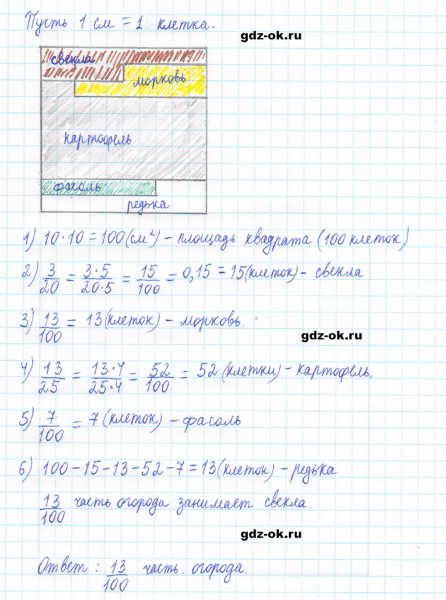 Пусть 1 см = 1 клетка.
gdz-ok.ru
свёкла
морковь
картофель
фасоль
редька
1) 10·10 = 100 (см²) – площадь квадрата (100 клеток)
2) 3/20 = 3·5/20·5 = 15/100 = 0,15 = 15 (клеток) – свекла
3) 13/100 = 13 (клеток) – морковь.
gdz-ok.ru
4) 13/25 = 13·4/25·4 = 52/100 = 52 (клетки) – картофель.
5) 7/100 = 7 (клеток) – фасоль
6) 100 – 15 – 13 – 52 – 7 = 13 (клеток) – редька
13/100 часть огорода занимает свекла.
gdz-ok.ru
Ответ: 13/100 часть огорода.